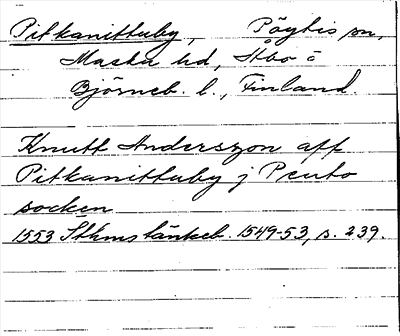 Pitkanittuby, Pöytis sn,
Masku hd, Åbo o
Björneb. l., Finland.
Knutt Anderszon aff
Pitkanittuby j Peuto
socken
1553 Sthms tänkeb. 1549-53, s. 239.